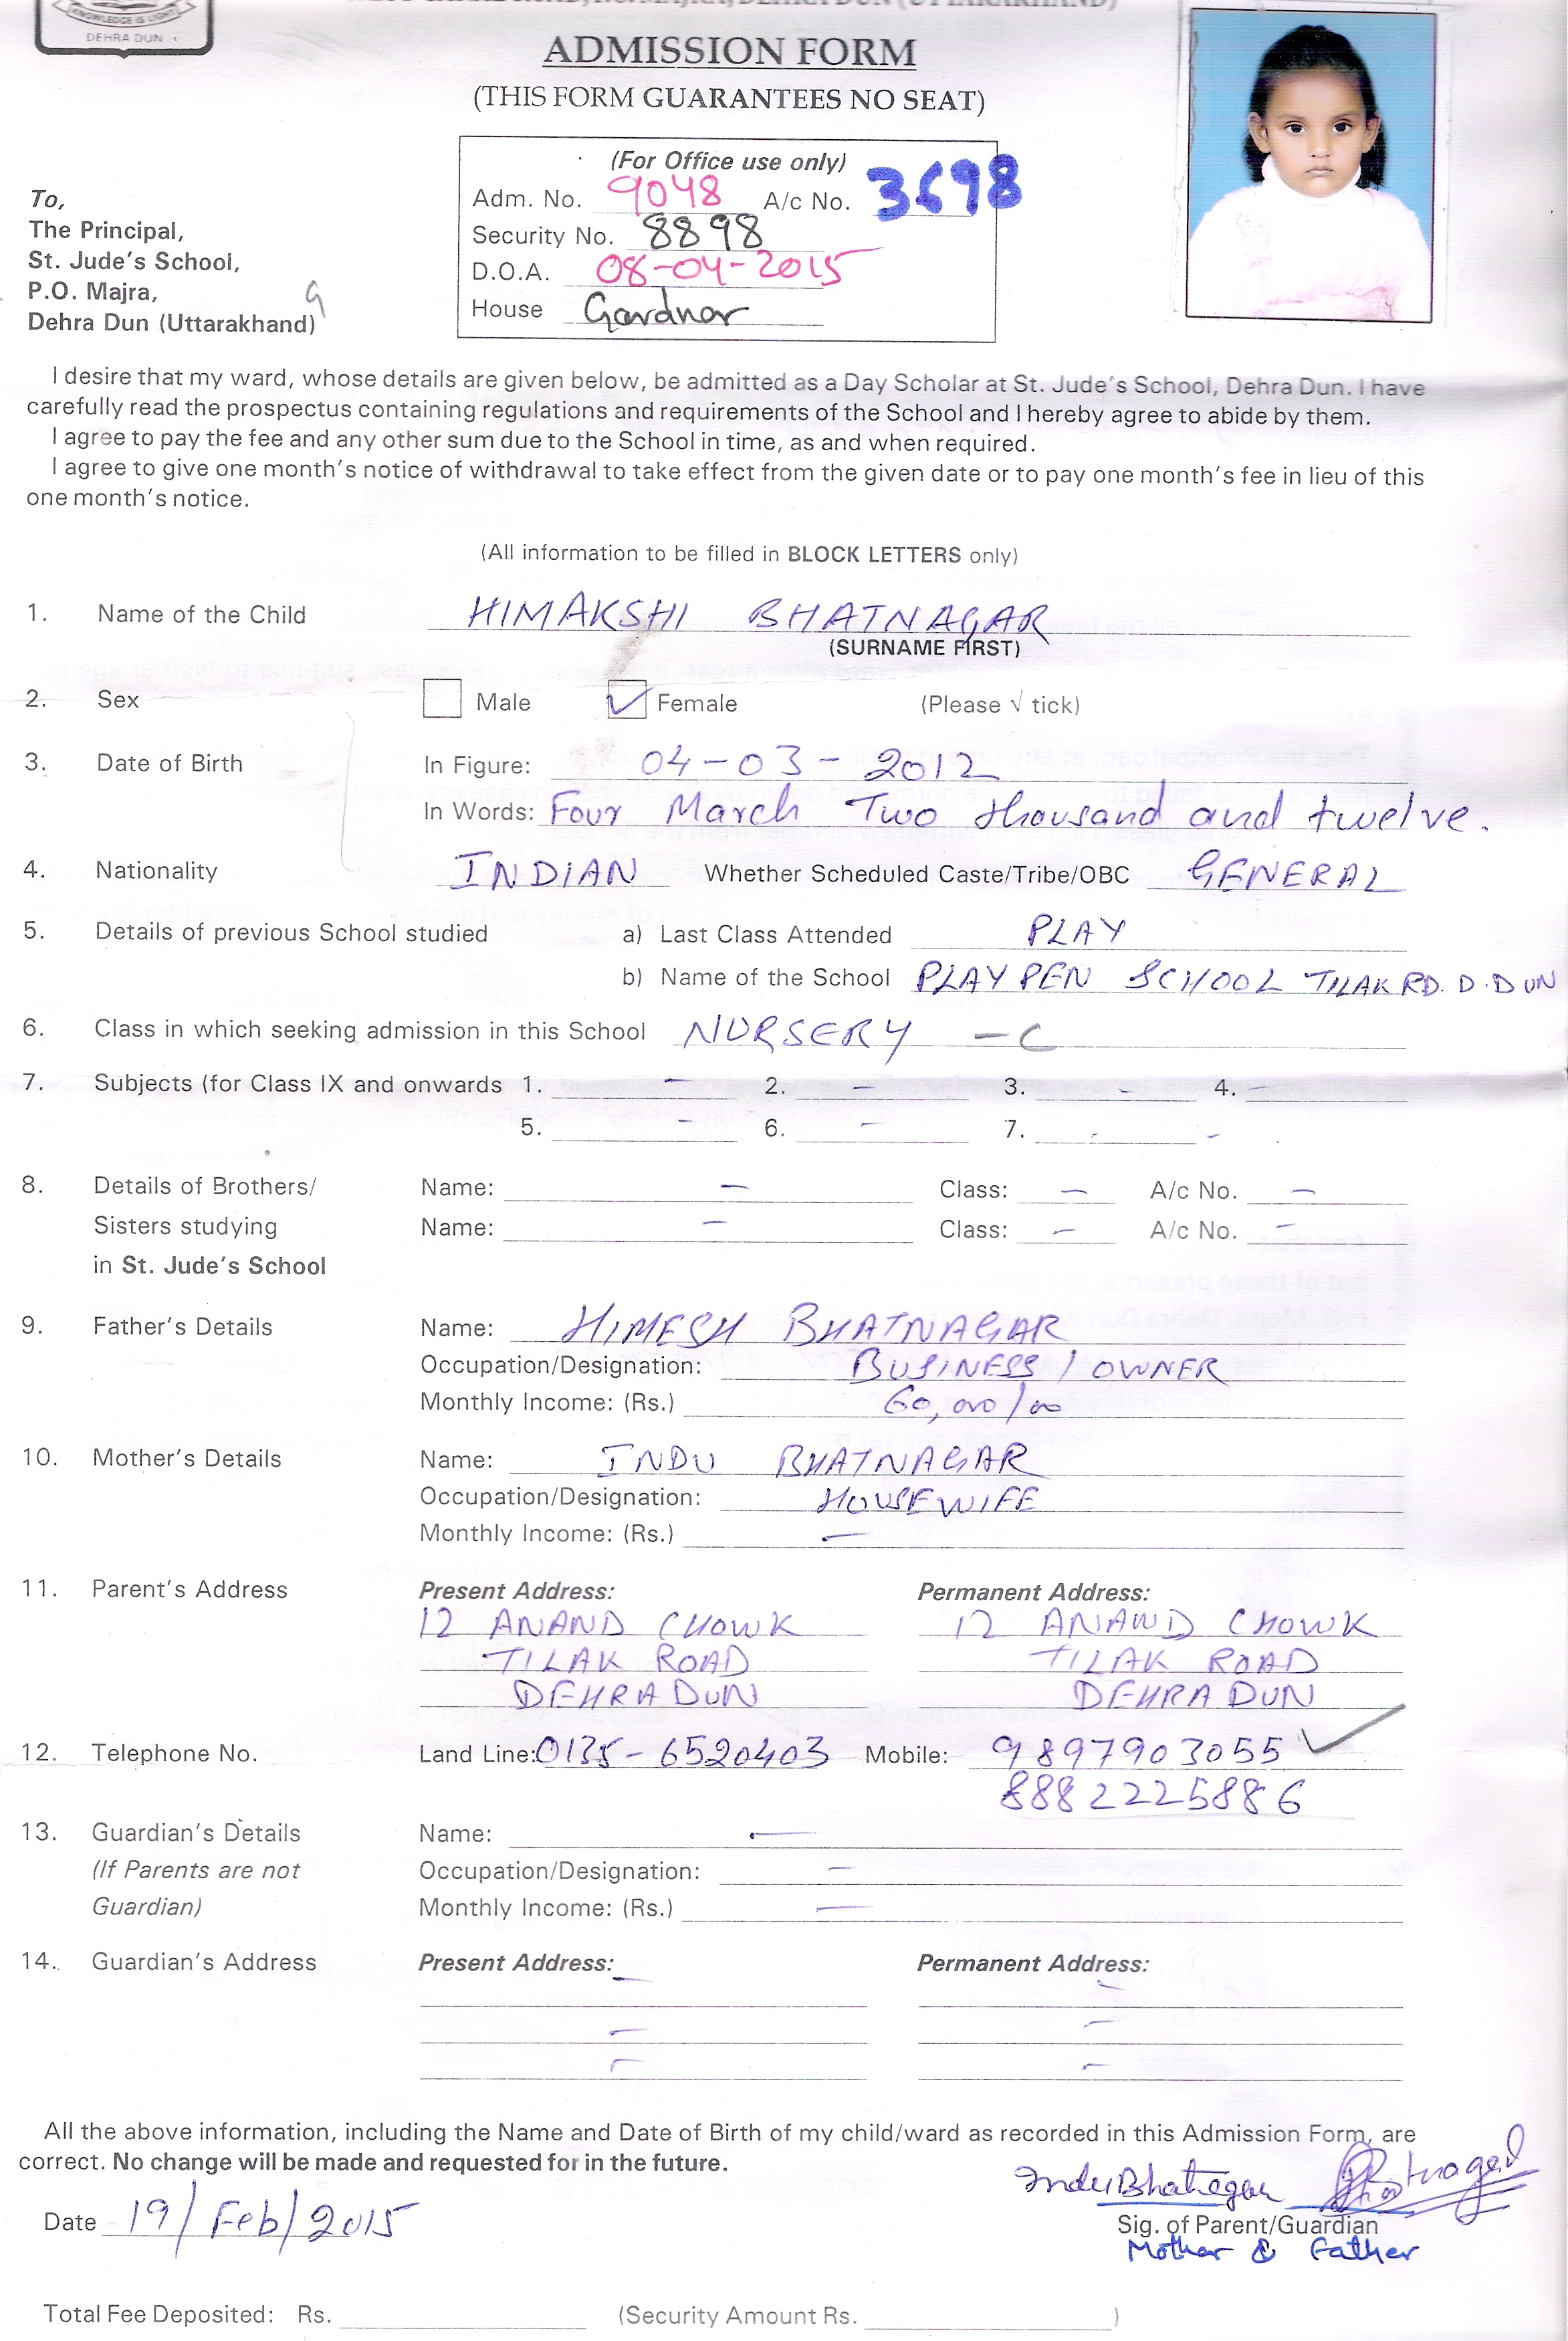 KNOWLEDGE IS LIGHT
DEHRA DUN
ADMISSION FORM
(THIS FORM GUARANTEES NO SEAT)
(For Office use only)
Adm. No. 9048 A/c No. 3698
Security No. 8898
D.O.A. 08-04-2015
House Gardnar
To,
The Principal,
St. Jude's School,
P.O. Majra,
Dehra Dun (Uttarakhand)
I desire that my ward, whose details are given below, be admitted as a Day Scholar at St. Jude's School, Dehra Dun. I have
carefully read the prospectus containing regulations and requirements of the School and I hereby agree to abide by them.
I agree to pay the fee and any other sum due to the School in time, as and when required.
I agree to give one month's notice of withdrawal to take effect from the given date or to pay one month's fee in lieu of this
one month's notice.
(All information to be filled in BLOCK LETTERS only)
1. Name of the Child HIMAKSHI BHATNAGAR
(SURNAME FIRST)
2. Sex Male ✓ Female (Please √ tick)
3. Date of Birth In Figure: 04-03-2012
In Words: Four March Two thousand and twelve.
4. Nationality INDIAN Whether Scheduled Caste/Tribe/OBC GENERAL
5. Details of previous School studied a) Last Class Attended PLAY
b) Name of the School PLAY PEN SCHOOL TILAK RD. D.DUN
6. Class in which seeking admission in this School NURSERY - C
7. Subjects (for Class IX and onwards 1. - 2. - 3. - 4. -
5. - 6. - 7. -
8. Details of Brothers/ Name: - Class: - A/c No. -
Sisters studying Name: - Class: - A/c No. -
in St. Jude's School
9. Father's Details Name: HIMESH BHATNAGAR
Occupation/Designation: BUSINESS / OWNER
Monthly Income: (Rs.) 60,000/00
10. Mother's Details Name: INDU BHATNAGAR
Occupation/Designation: HOUSEWIFE
Monthly Income: (Rs.) -
11. Parent's Address Present Address: Permanent Address:
12 ANAND CHOWK 12 ANAND CHOWK
TILAK ROAD TILAK ROAD
DEHRADUN DEHRADUN
12. Telephone No. Land Line: 0135-6520403 Mobile: 9897903055 ✓
8882225886
13. Guardian's Details Name: -
(If Parents are not Occupation/Designation: -
Guardian) Monthly Income: (Rs.) -
14. Guardian's Address Present Address: - Permanent Address: -
- -
- -
All the above information, including the Name and Date of Birth of my child/ward as recorded in this Admission Form, are
correct. No change will be made and requested for in the future.
Indu Bhatnagar
Date 19/Feb/2015
Sig. of Parent/Guardian
Mother & Father
Total Fee Deposited: Rs. (Security Amount Rs. )